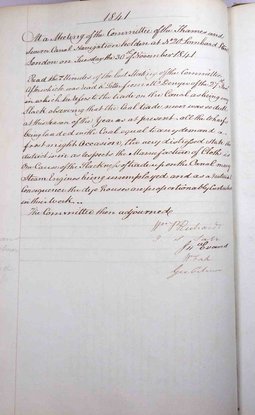 1841
At a Meeting of the Committee of the Thames and
Severn Canal Navigation holden at No 20 Lombard Street
London on Tuesday the 30th November 1841
Read the Minutes of the last Meeting of the Committee
After which was read a Letter from Mr Denyer of the 27th
in which he refers to the trade on the Canal as being very
slack observing that the Coal trade never was so dull
at this season of the year as at present. All the Wharfs
being loaded with Coal equal to any demand a
frost might occasion. The very distressed state of the
district in as respects the Manufacture of Cloth is
One Cause of the slackness of trade upon the Canal many
Steam Engines being unemployed and as a natural
Consequence the dye houses are proportionably Curtailed
in their work
The Committee then adjourned
Wm Richards
Evans